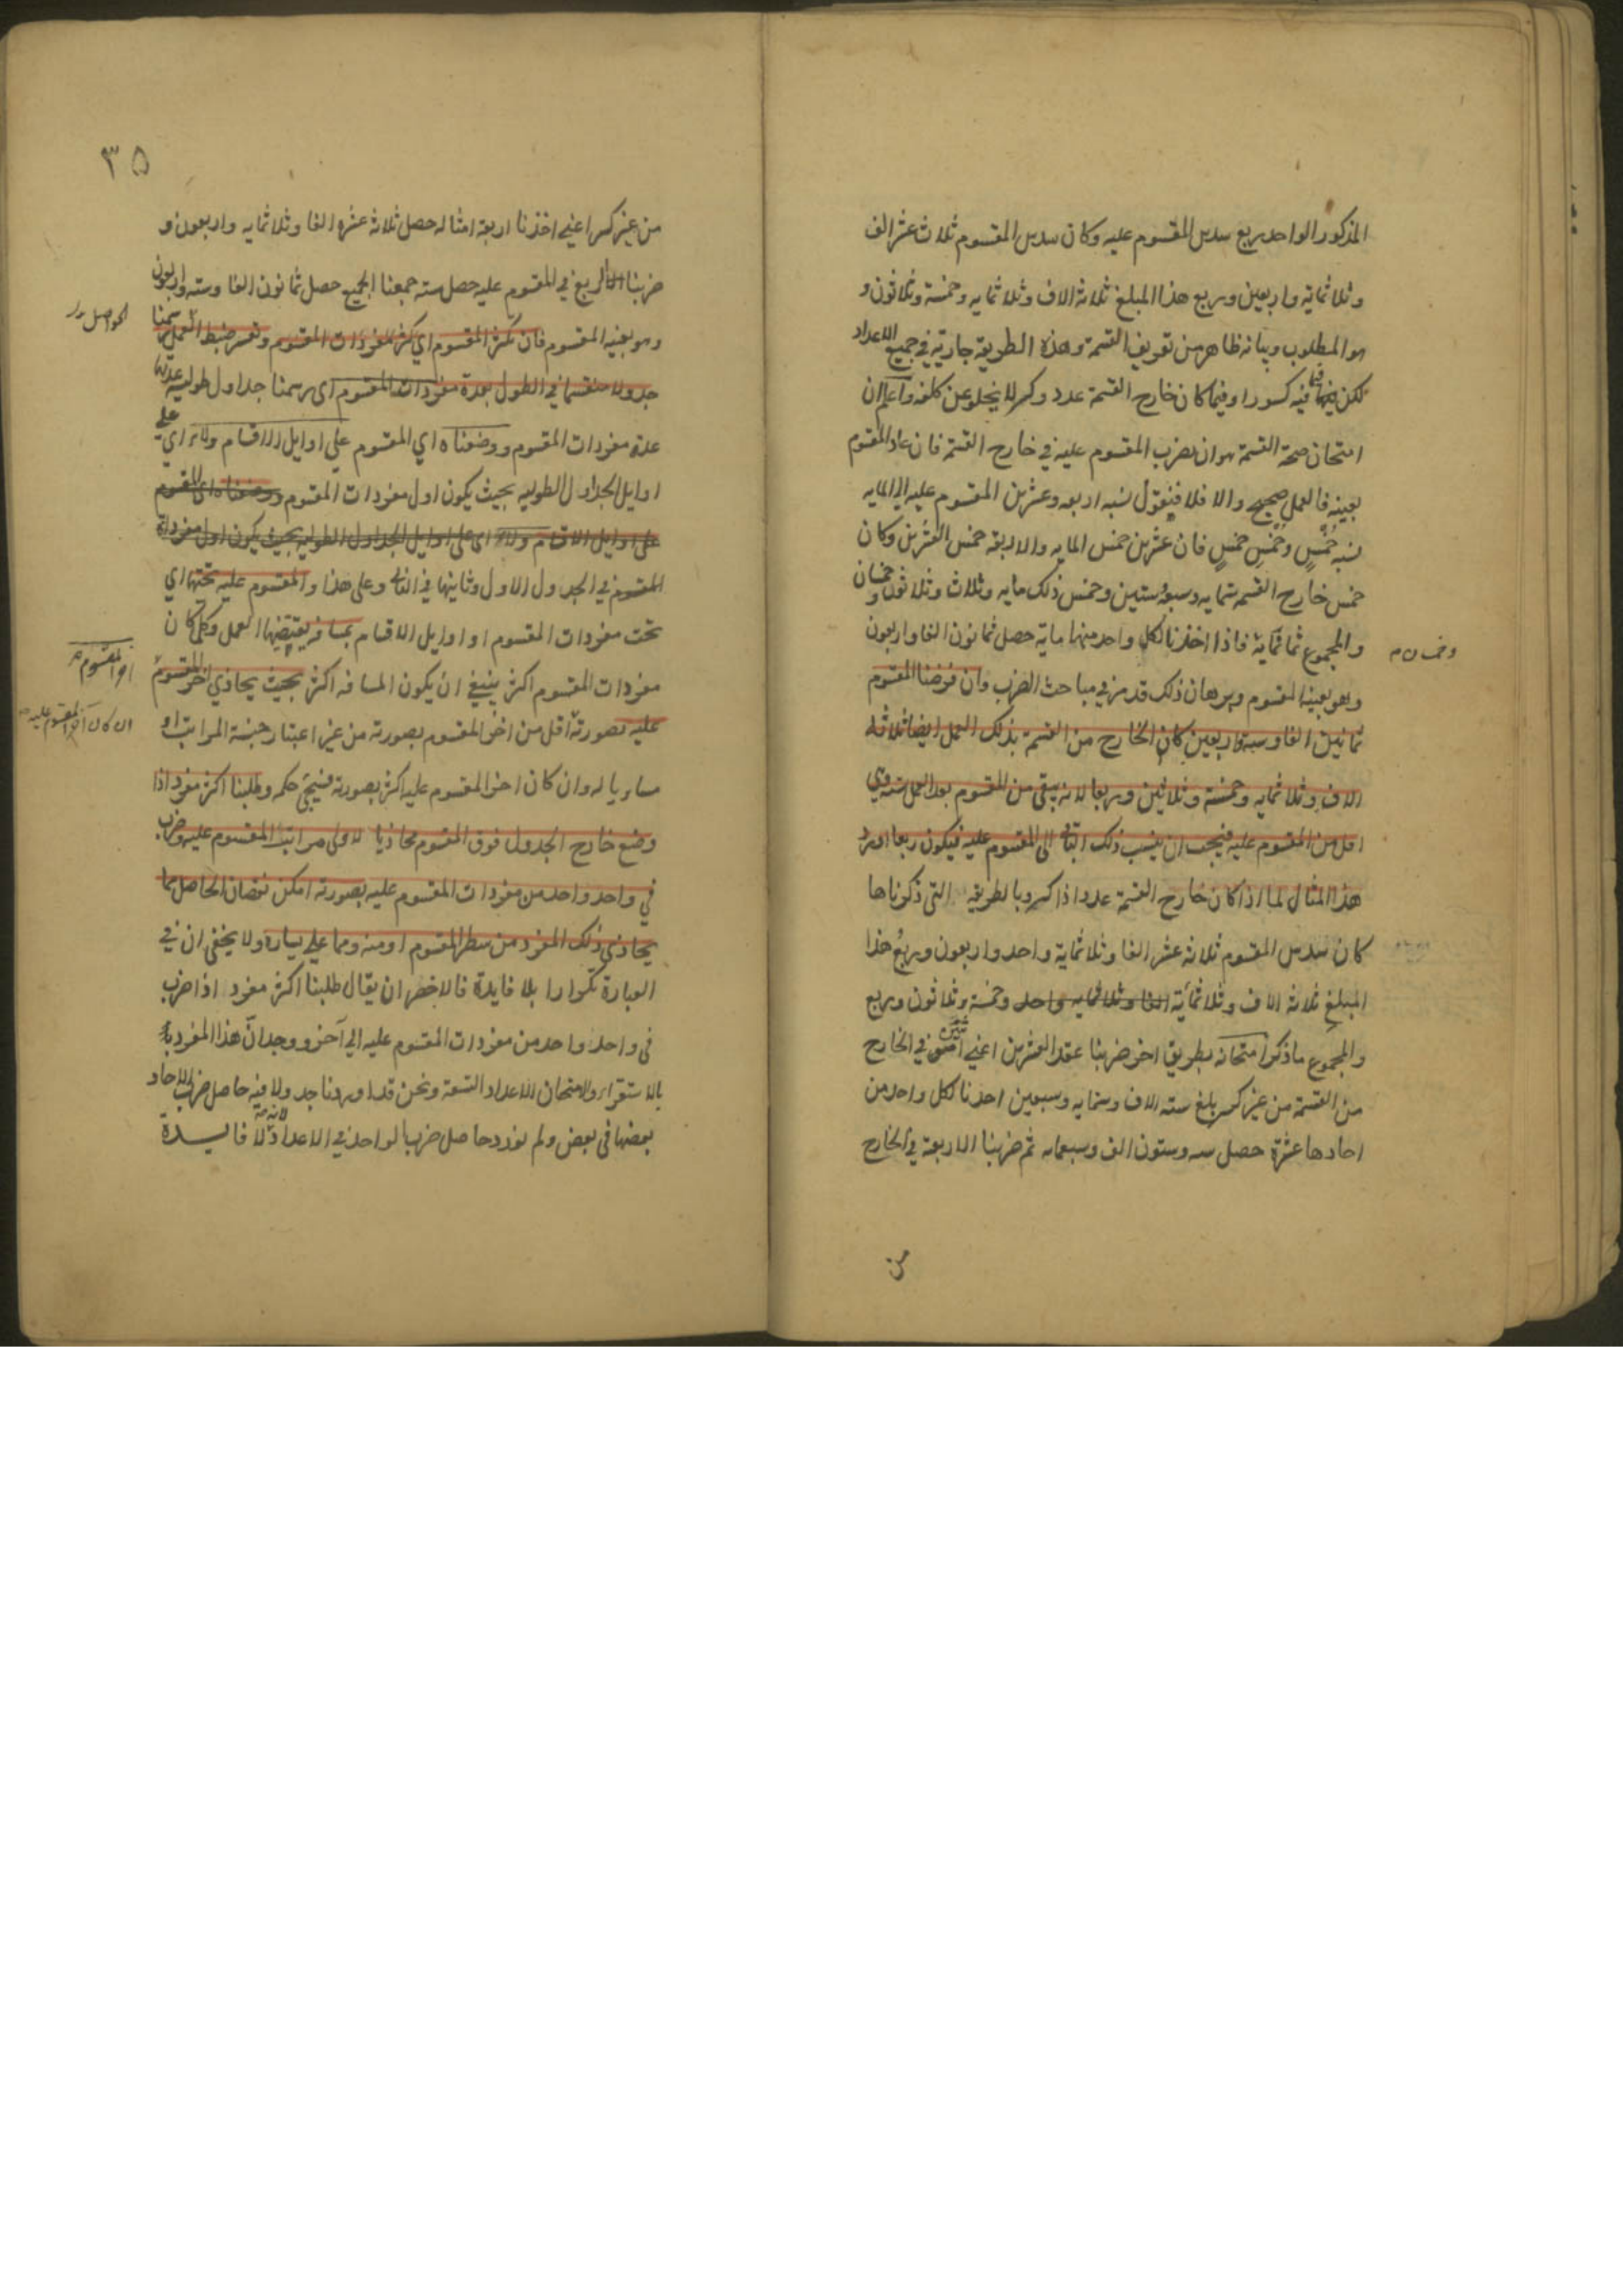 المذكور الواحد ربع سدس المقسوم عليه وكان سدس المقسوم ثلاث عشر الف
وثلاثماية واربعين وربع هذا المبلغ ثلاثة الاف وثلاثمايه وخمسة وثلاثون و
هو المطلوب وبيانه ظاهر من تعريف القسمة وهذه الطريقة جارية في جميع الاعداد
لكن فيما فيه كسورا وفيما كان خارج القسمة عدد وكسر لا يخلو عن كلفه واعلم ان
امتحان صحة القسمة هو ان يضرب المقسوم عليه في خارج القسمة فان عاد المقسوم
بعينه فالعمل صحيح والا فلا فنقول نسبه اربعه وعشرين المقسوم عليه الي المايه
نسبه خُمسٍ وخُمسِ خمسٍ فان عشرين خمس المايه والاربعة خمس العشرين وكان
خمس خارج القسمه ستمايه وسبعة وستين وخمس ذلك مايه وثلاث وثلاثون وخمسان
والمجموع ثمانماية فاذا اخذنا لكل واحد منها ماية حصل ثمانون الفا واربعون
وخمسان
وهو بعينه المقسوم وبرهان ذلك قد مر في مباحث الضرب وان فرضنا المقسوم
ثمانين الفا وستة واربعين كان الخارج من القسمة بذلك العمل ايضا ثلاثة
الاف وثلاثمايه وخمسة وثلاثين وربعا لانه يبقى من المقسوم بعد العمل ستة وهي
اقل من المقسوم عليه فيجب ان ينسب ذلك الباقي الى المقسوم عليه فيكون ربعا اورد
هذا المثال لما اذا كان خارج القسمة عددا ذا كسر وبالطريقه التى ذكرناها
كان سدس المقسوم ثلاثة عشر الفا وثلاثماية واحد واربعون وربعُ هذا
المبلغ ثلاثة الاف وثلاثمائة الفا وثلاثمايه واحد وخمسة وثلاثون وربع
والمجموع ما ذكر امتحانه بطريق اخر ضربنا عقد العشرين اعني اثنين في الخارج
من القسمة من غير كسر بلغ سته الاف وستمايه وسبعين اخذنا لكل واحد من
احادها عشرة حصل سه وستون الف وسبعمايه ثم ضربنا الاربعة في الخارج
من
٣٥
من غير كسر اعني اخذنا اربعة امثاله حصل ثلاثة عشره الفا وثلاثمايه واربعون و
ضربنا الربع في المقسوم عليه حصل سته جمعنا الجميع حصل ثمانون الفا وسته واربعون
وهو بعينه المقسوم فان تكثر المقسوم اي كثر مفردات المقسوم وتعسر ضبط العمل رسمنا
الحواصل
جدولا منقسما في الطول بعدة مفردات المقسوم اى رسمنا جداول طوليه عدتها
عدة مفردات المقسوم ووضعناه اي المقسوم على اوايل الاقسام ولاء اي على
اوايل الجداول الطوليه بحيث يكون اول مفردات المقسوم ووضعناه اى المقسوم
على اوايل الاقسام ولاء اى على اوايل الجداول الطوليه بحيث يكون اول مفرداة
المقسوم في الجدول الاول وثانيها في الثاني وعلى هذا والمقسوم عليه تحتها اي
تحت مفردات المقسوم او اوايل الاقسام بمسافه يقتضيها العمل وكل كان
مفردات المقسوم اكثر ينبغي ان يكون المسافه اكثر بحيث يحاذي اخر المقسوم
اخر المقسوم
عليه بصورته اقل من اخر المقسوم بصورته من غير اعتبار خمسة المراتب او
ان كان آخر المقسوم عليه
مساويا له وان كان اخر المقسوم عليه اكثر بصورته فسيجئ حكمه وطلبنا اكثر مفرد اذا
وضع خارج الجدول فوق المقسوم محاذيا لاولى مراتب المقسوم عليه وضرب
في واحد واحد من مفردات المقسوم عليه بصورته امكن نقصان الحاصل مما
يحاذي ذلك المفرد من سطر المقسوم او منه ومما على يساره ولا يخفى ان في
العبارة تكرارا بلا فايدة فالاخصر ان يقال طلبنا اكثر مفرد اذا ضرب
فى واحد واحد من مفردات المقسوم عليه الي آخره ووجدانّ هذا المفرد
بالاستقراء والامتحان للاعداد التسعة ونحن قد اوردنا جدولا فيه حاصل ضرب الاحاد
بعضها فى بعض ولم نورد حاصل ضرب الواحد في الاعداد لانه لا فايدة